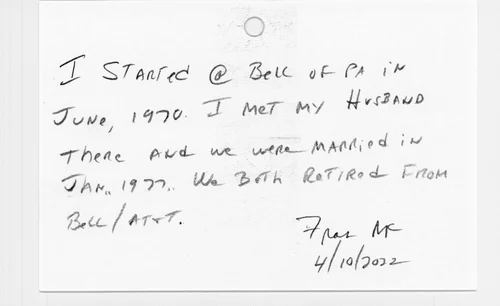 I STARTED @ BELL OF PA IN
JUNE, 1970. I MET MY HUSBAND
THERE AND WE WERE MARRIED IN
JAN., 1977. WE BOTH RETIRED FROM
BELL/AT&T.
Fran
4/10/2022